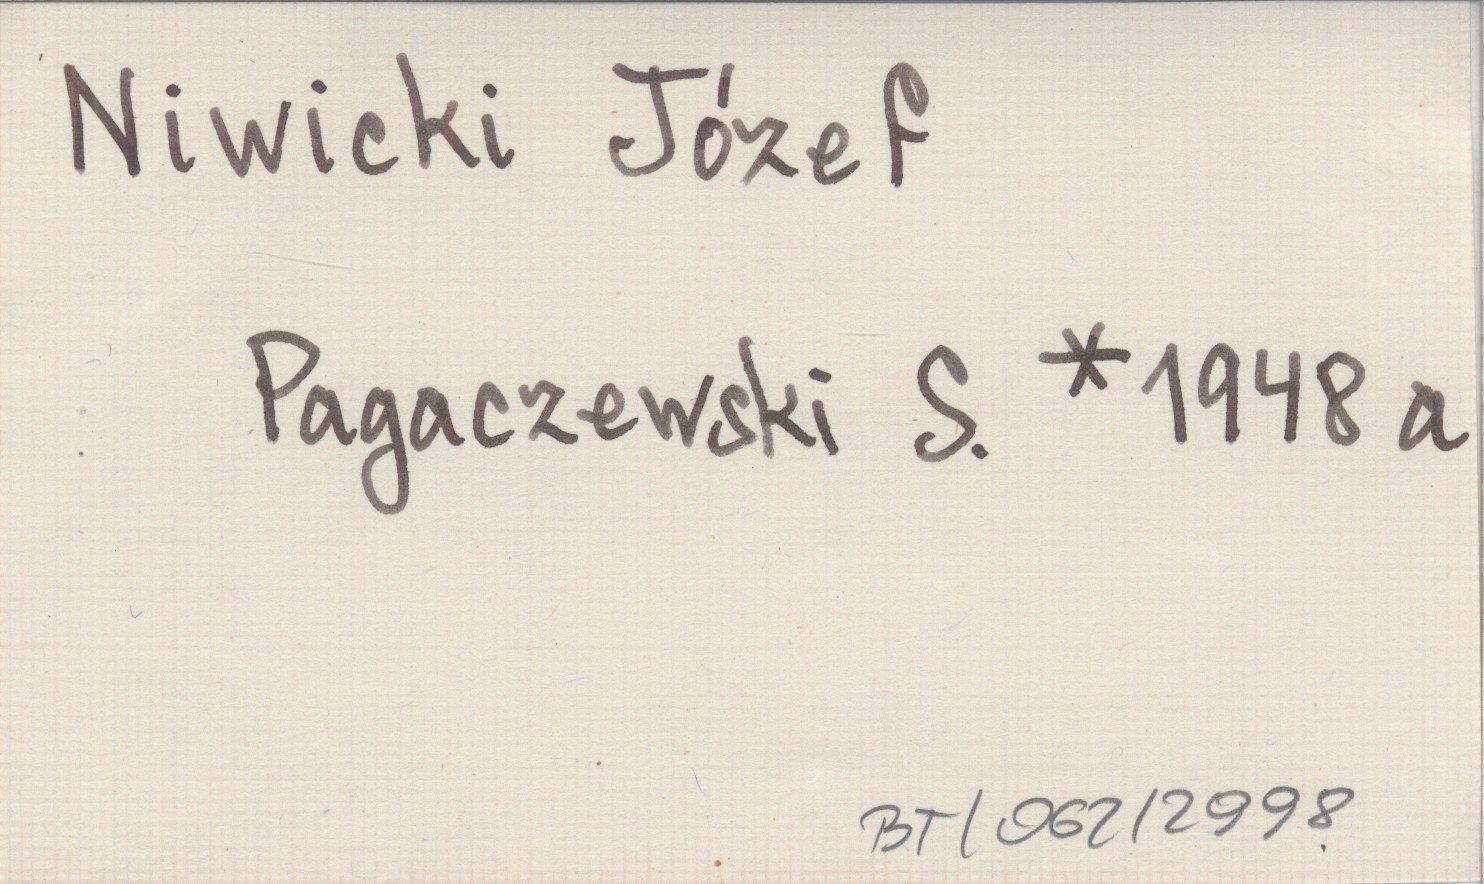 Niwicki Józef
Pagaczewski S. *1948 a
BT/062/2998